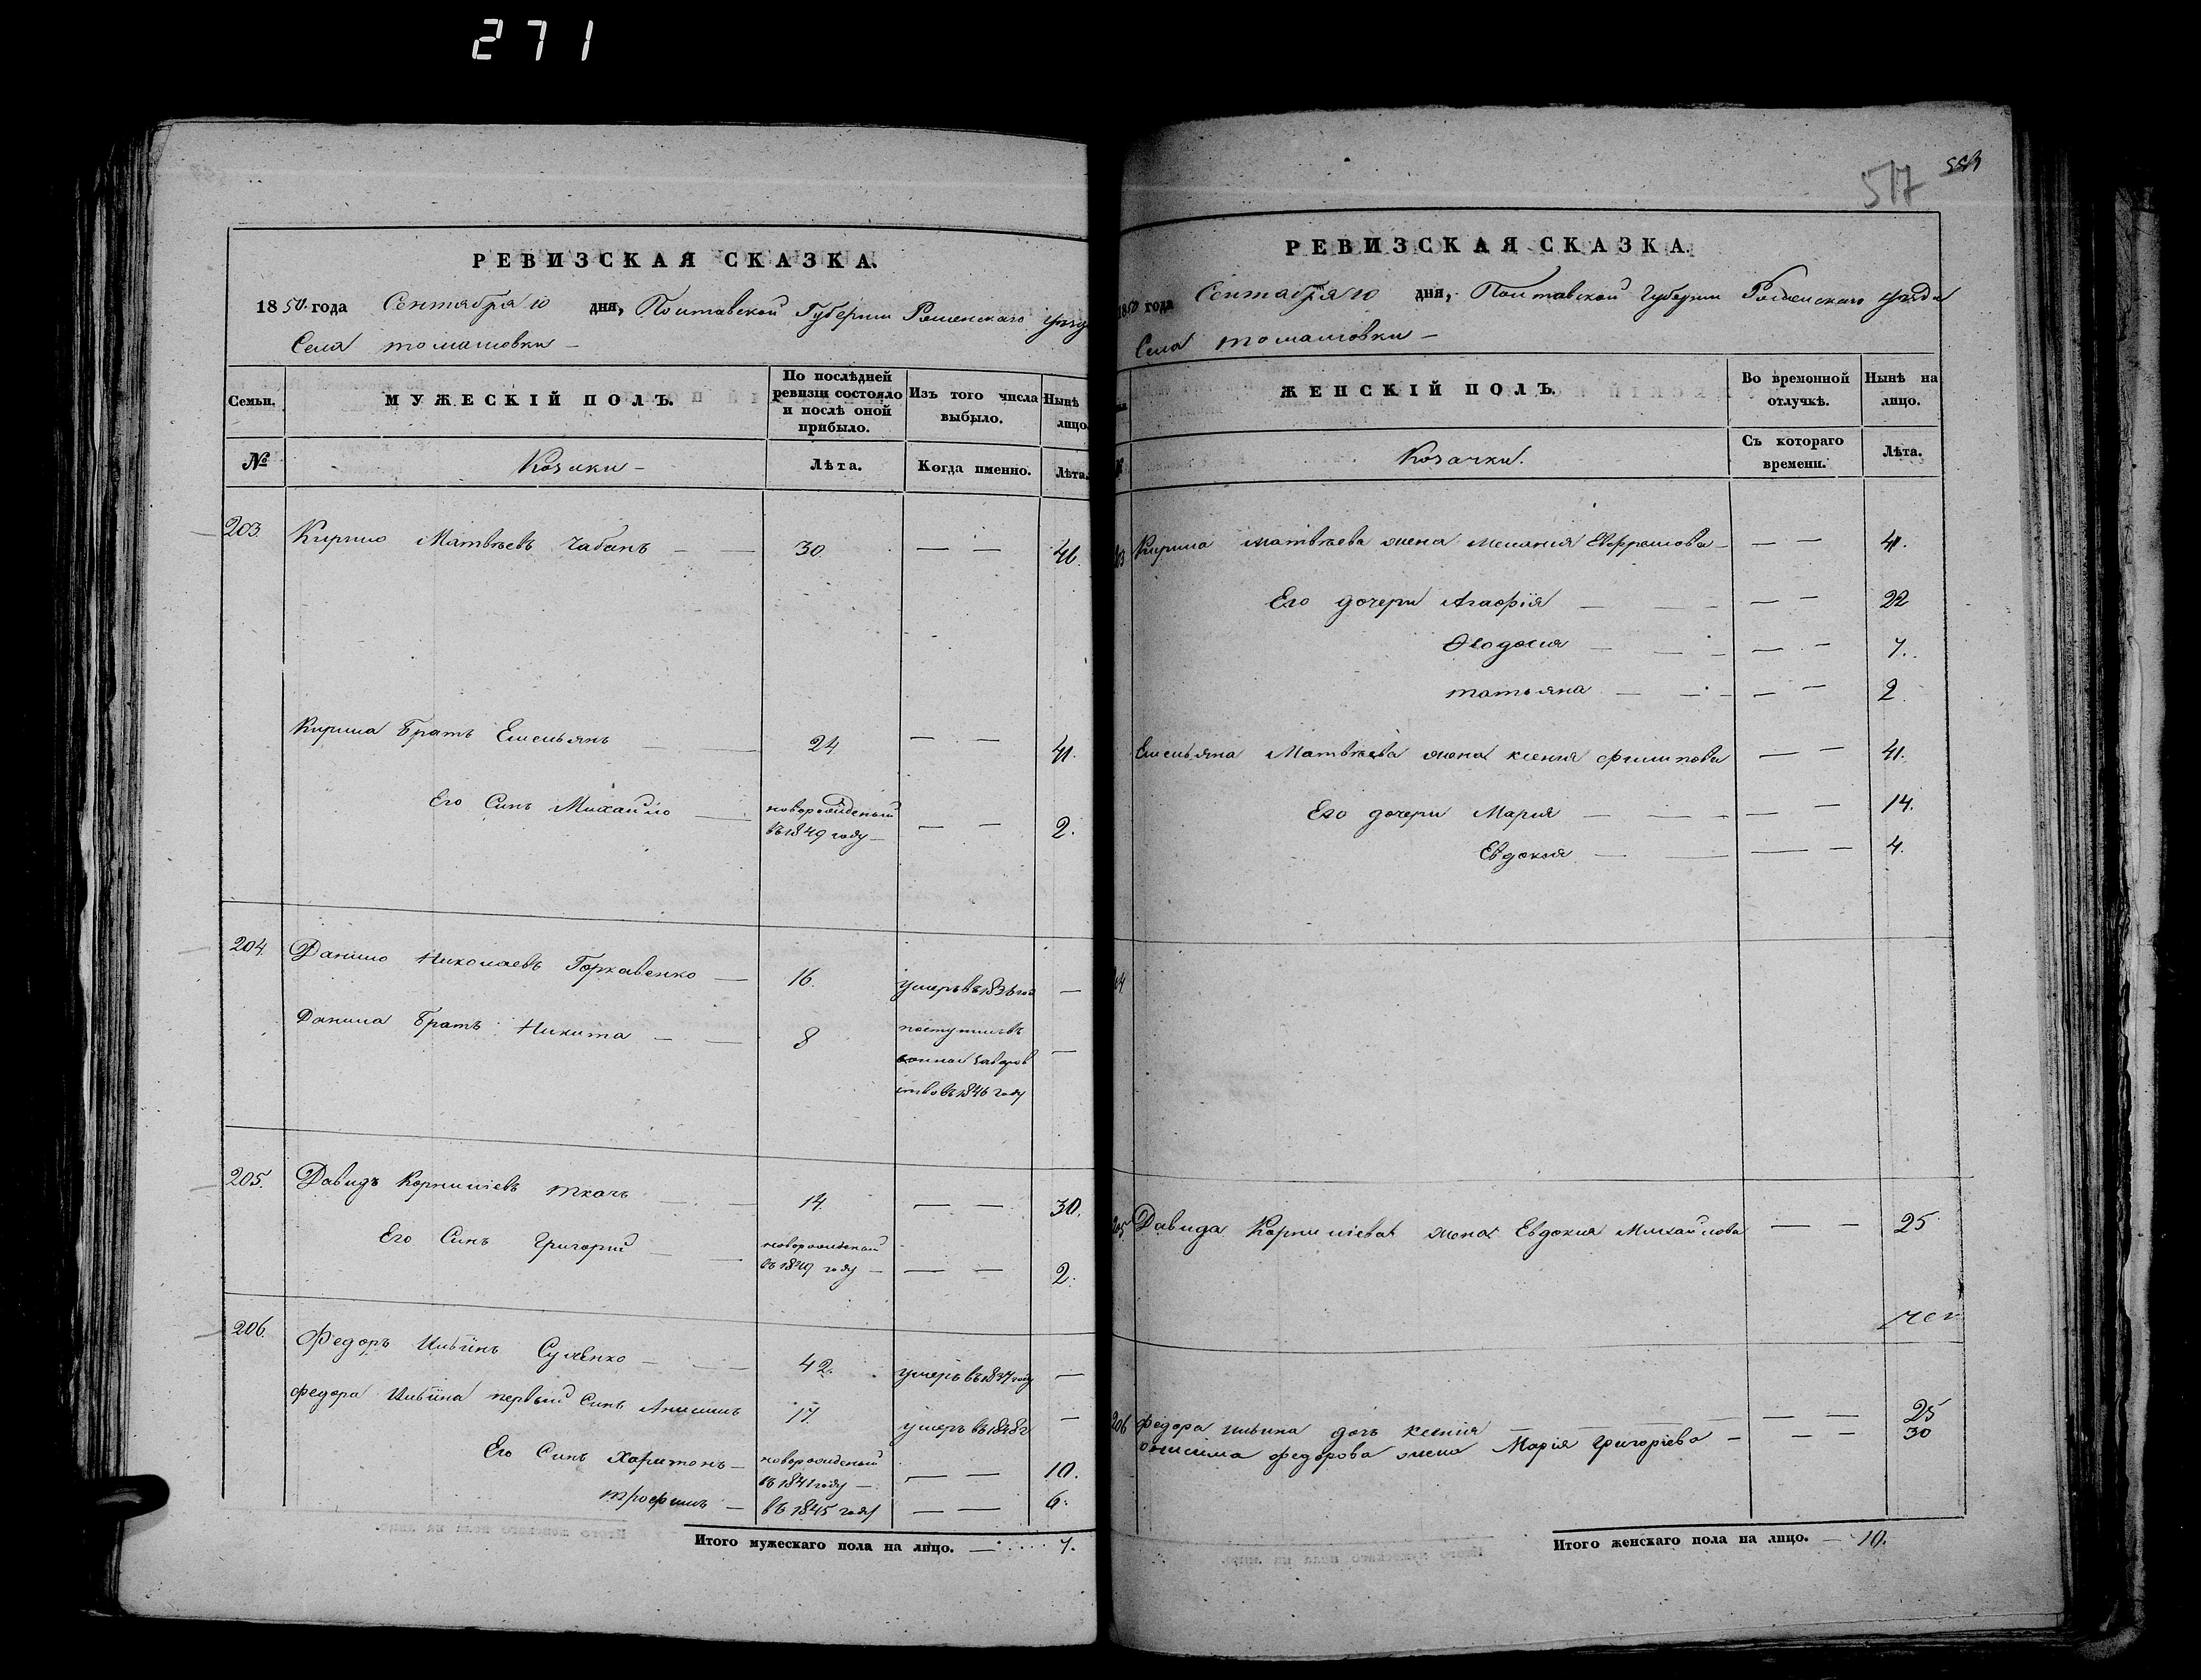 271
РЕВИЗСКАЯ СКАЗКА.
1850. года Сентября 10 дня, Полтавской Губернии Роменскаго уезд
Села томашовки —
Семьи. МУЖЕСКІЙ ПОЛЪ. По послѣдней ревизіи состояло и послѣ оной прибыло. Изъ того числа выбыло. Нынѣ лицо.
№ Козаки — Лѣта. Когда именно. Лѣта.
203. Кирило Матвѣевъ Чабанъ — — 30. — — 46.
Кирила Братъ Емельянъ — 24 — — 41.
Его Синъ Михайло — новорожденый въ 1849 году — — — 2.
204. Данило Николаевъ Горкавенко — 16. умеръ въ 1836 год —
Данила Братъ Никита — — 8 поступилъ въ
въ 1846 году —
205. Давидъ Корнилiевъ ткачь — — 14. — — 30.
Его Синъ Григорий — — новорожденый въ 1849 году — — — 2.
206. Федоръ Ильiинъ Сулченко — — 42. умеръ въ 1837 году —
Федора Ильiина первый Синъ Анисимъ 17. умеръ въ 1848 г —
Его Синъ Харитонъ — новорожденый въ 1841 году — — — 10.
трофимъ — въ 1845 году — — 6.
Итого мужескаго пола на лицо. — 7.
517
РЕВИЗСКАЯ СКАЗКА.
1850 года Сентября 10 дня, Полтавской Губернии Роменскаго уезда
Села томашовки —
ЖЕНСКІЙ ПОЛЪ. Во временной отлучкѣ. Нынѣ на лицо.
Козачки. Съ котораго времени. Лѣта.
203 Кирила матвѣева жена мелания Евфремова — — — 41.
Его дочери Агафiя — — — — 22
Ѳеодосия — — — — 7.
татьяна — — — — 2.
Емельяна Матвѣева жена ксения филипова — — 41.
Его дочери Мария — — — — 14.
Евдокия — — — — 4.
204
205 Давида Корнилiева жена Евдокия Михайлова — — 25
206 федора ильина дочь ксенiя — — — — 25
онисима федорова жена Марiя Григорiева — — — 30
Итого женскаго пола на лицо. — 10.